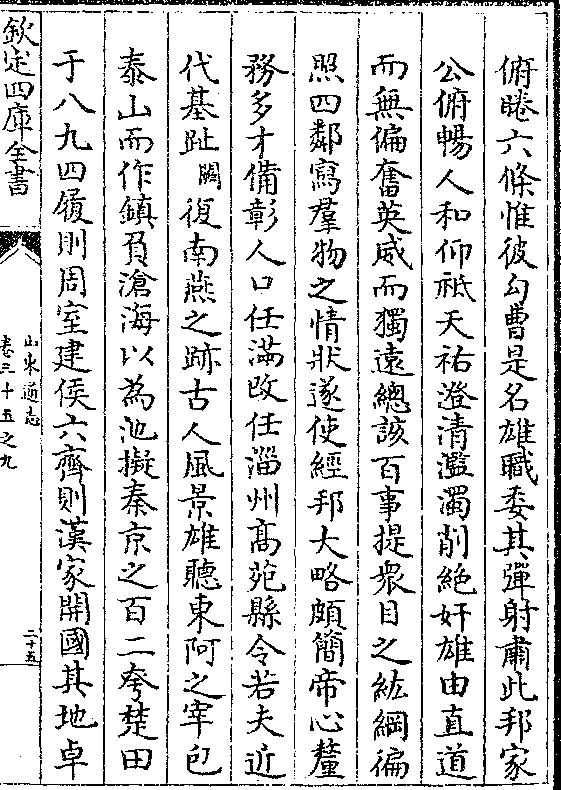 俯睠六條惟彼勾曹是名雄職委其彈射肅此邦家
公俯暢人和仰祗天祐澄清濫濁削絶奸雄由直道
而無偏奮英威而獨遠總該百事提衆目之紘綱徧
照四鄰寫羣物之情狀遂使經邦大略頗簡帝心釐
務多才備彰人口任滿改任淄州高苑縣令若夫近
代基趾闕復南燕之跡古人風景雄聽東阿之宰包
泰山而作鎮負滄海以為池擬秦京之百二夸楚田
于八九四履則周室建侯六齊則漢家開國其地卓
欽定四庫全書
山東通志
卷三十五之九
二十五